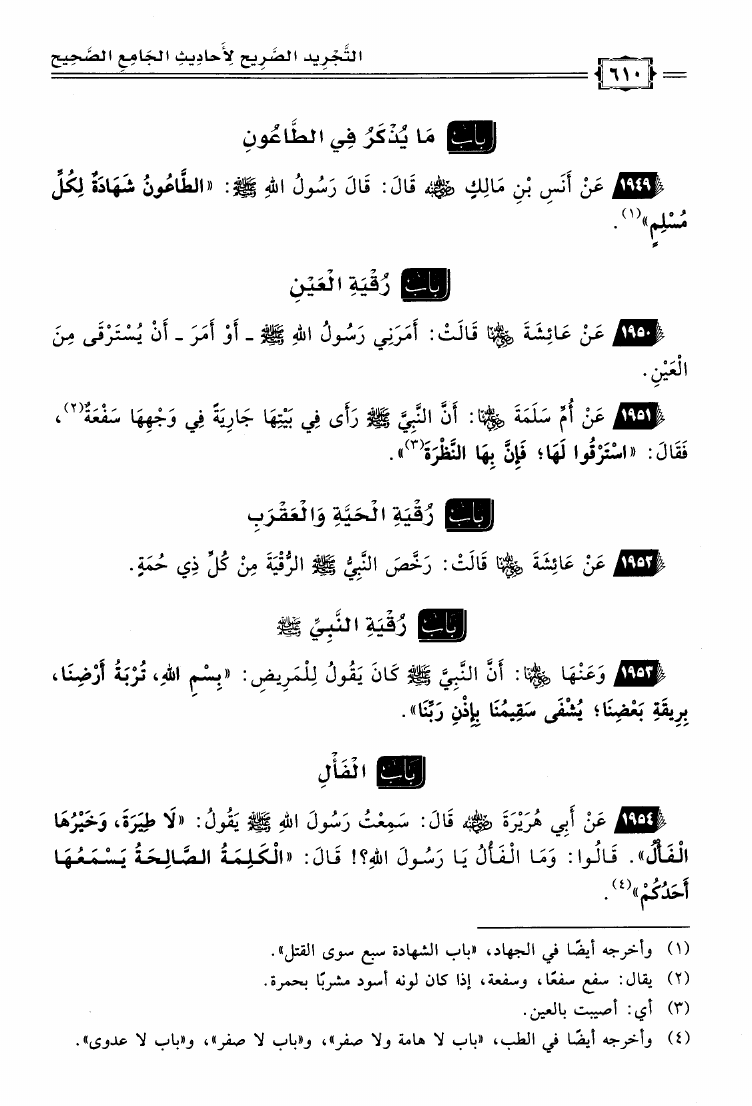 التَّجْرِيد الصَّرِيح لِأَحادِيثِ الجَامِعِ الصَّحِيح
٦١٠
باب مَا يُذْكَرُ فِي الطَّاعُونِ
١٩٤٩ عَنْ أَنَسِ بْنِ مَالِكٍ رضي الله عنه قَالَ: قَالَ رَسُولُ اللهِ ﷺ: «الطَّاعُونُ شَهَادَةٌ لِكُلِّ
مُسْلِمٍ»(١).
باب رُقْيَةِ الْعَيْنِ
١٩٥٠ عَنْ عَائِشَةَ رضي الله عنها قَالَتْ: أَمَرَنِي رَسُولُ اللهِ ﷺ - أَوْ أَمَرَ - أَنْ يُسْتَرْقَى مِنَ
الْعَيْنِ.
١٩٥١ عَنْ أُمِّ سَلَمَةَ رضي الله عنها: أَنَّ النَّبِيَّ ﷺ رَأَى فِي بَيْتِهَا جَارِيَةً فِي وَجْهِهَا سَفْعَةٌ(٢)،
فَقَالَ: «اسْتَرْقُوا لَهَا؛ فَإِنَّ بِهَا النَّظْرَةَ(٣)».
باب رُقْيَةِ الْحَيَّةِ وَالْعَقْرَبِ
١٩٥٢ عَنْ عَائِشَةَ رضي الله عنها قَالَتْ: رَخَّصَ النَّبِيُّ ﷺ الرُّقْيَةَ مِنْ كُلِّ ذِي حُمَةٍ.
باب رُقْيَةِ النَّبِيِّ ﷺ
١٩٥٣ وَعَنْهَا رضي الله عنها: أَنَّ النَّبِيَّ ﷺ كَانَ يَقُولُ لِلْمَرِيضِ: «بِسْمِ اللهِ، تُرْبَةُ أَرْضِنَا،
بِرِيقَةِ بَعْضِنَا؛ يُشْفَى سَقِيمُنَا بِإِذْنِ رَبِّنَا».
باب الْفَأْلِ
١٩٥٤ عَنْ أَبِي هُرَيْرَةَ رضي الله عنه قَالَ: سَمِعْتُ رَسُولَ اللهِ ﷺ يَقُولُ: «لَا طِيَرَةَ، وَخَيْرُهَا
الْفَأْلُ». قَالُوا: وَمَا الْفَأْلُ يَا رَسُولَ اللهِ؟! قَالَ: «الْكَلِمَةُ الصَّالِحَةُ يَسْمَعُهَا
أَحَدُكُمْ»(٤).
(١) وأخرجه أيضًا في الجهاد، «باب الشهادة سبع سوى القتل».
(٢) يقال: سفع سفعًا، وسفعة، إذا كان لونه أسود مشربًا بحمرة.
(٣) أي: أصيبت بالعين.
(٤) وأخرجه أيضًا في الطب، «باب لا هامة ولا صفر»، و«باب لا صفر»، و«باب لا عدوى».